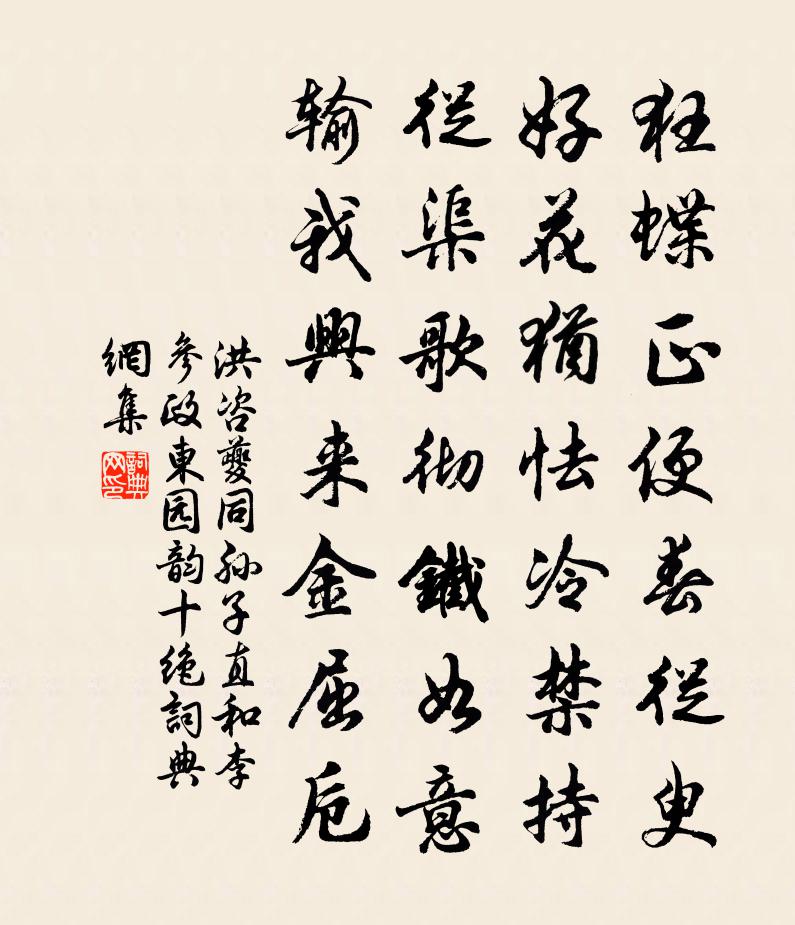 狂蝶正便春從臾
好花猶怯冷禁持
從渠歌彻鐵如意
输我興来金屈卮
洪咨夔同孙子直和李
參政東园韵十绝詞典
網集
詞典
网印